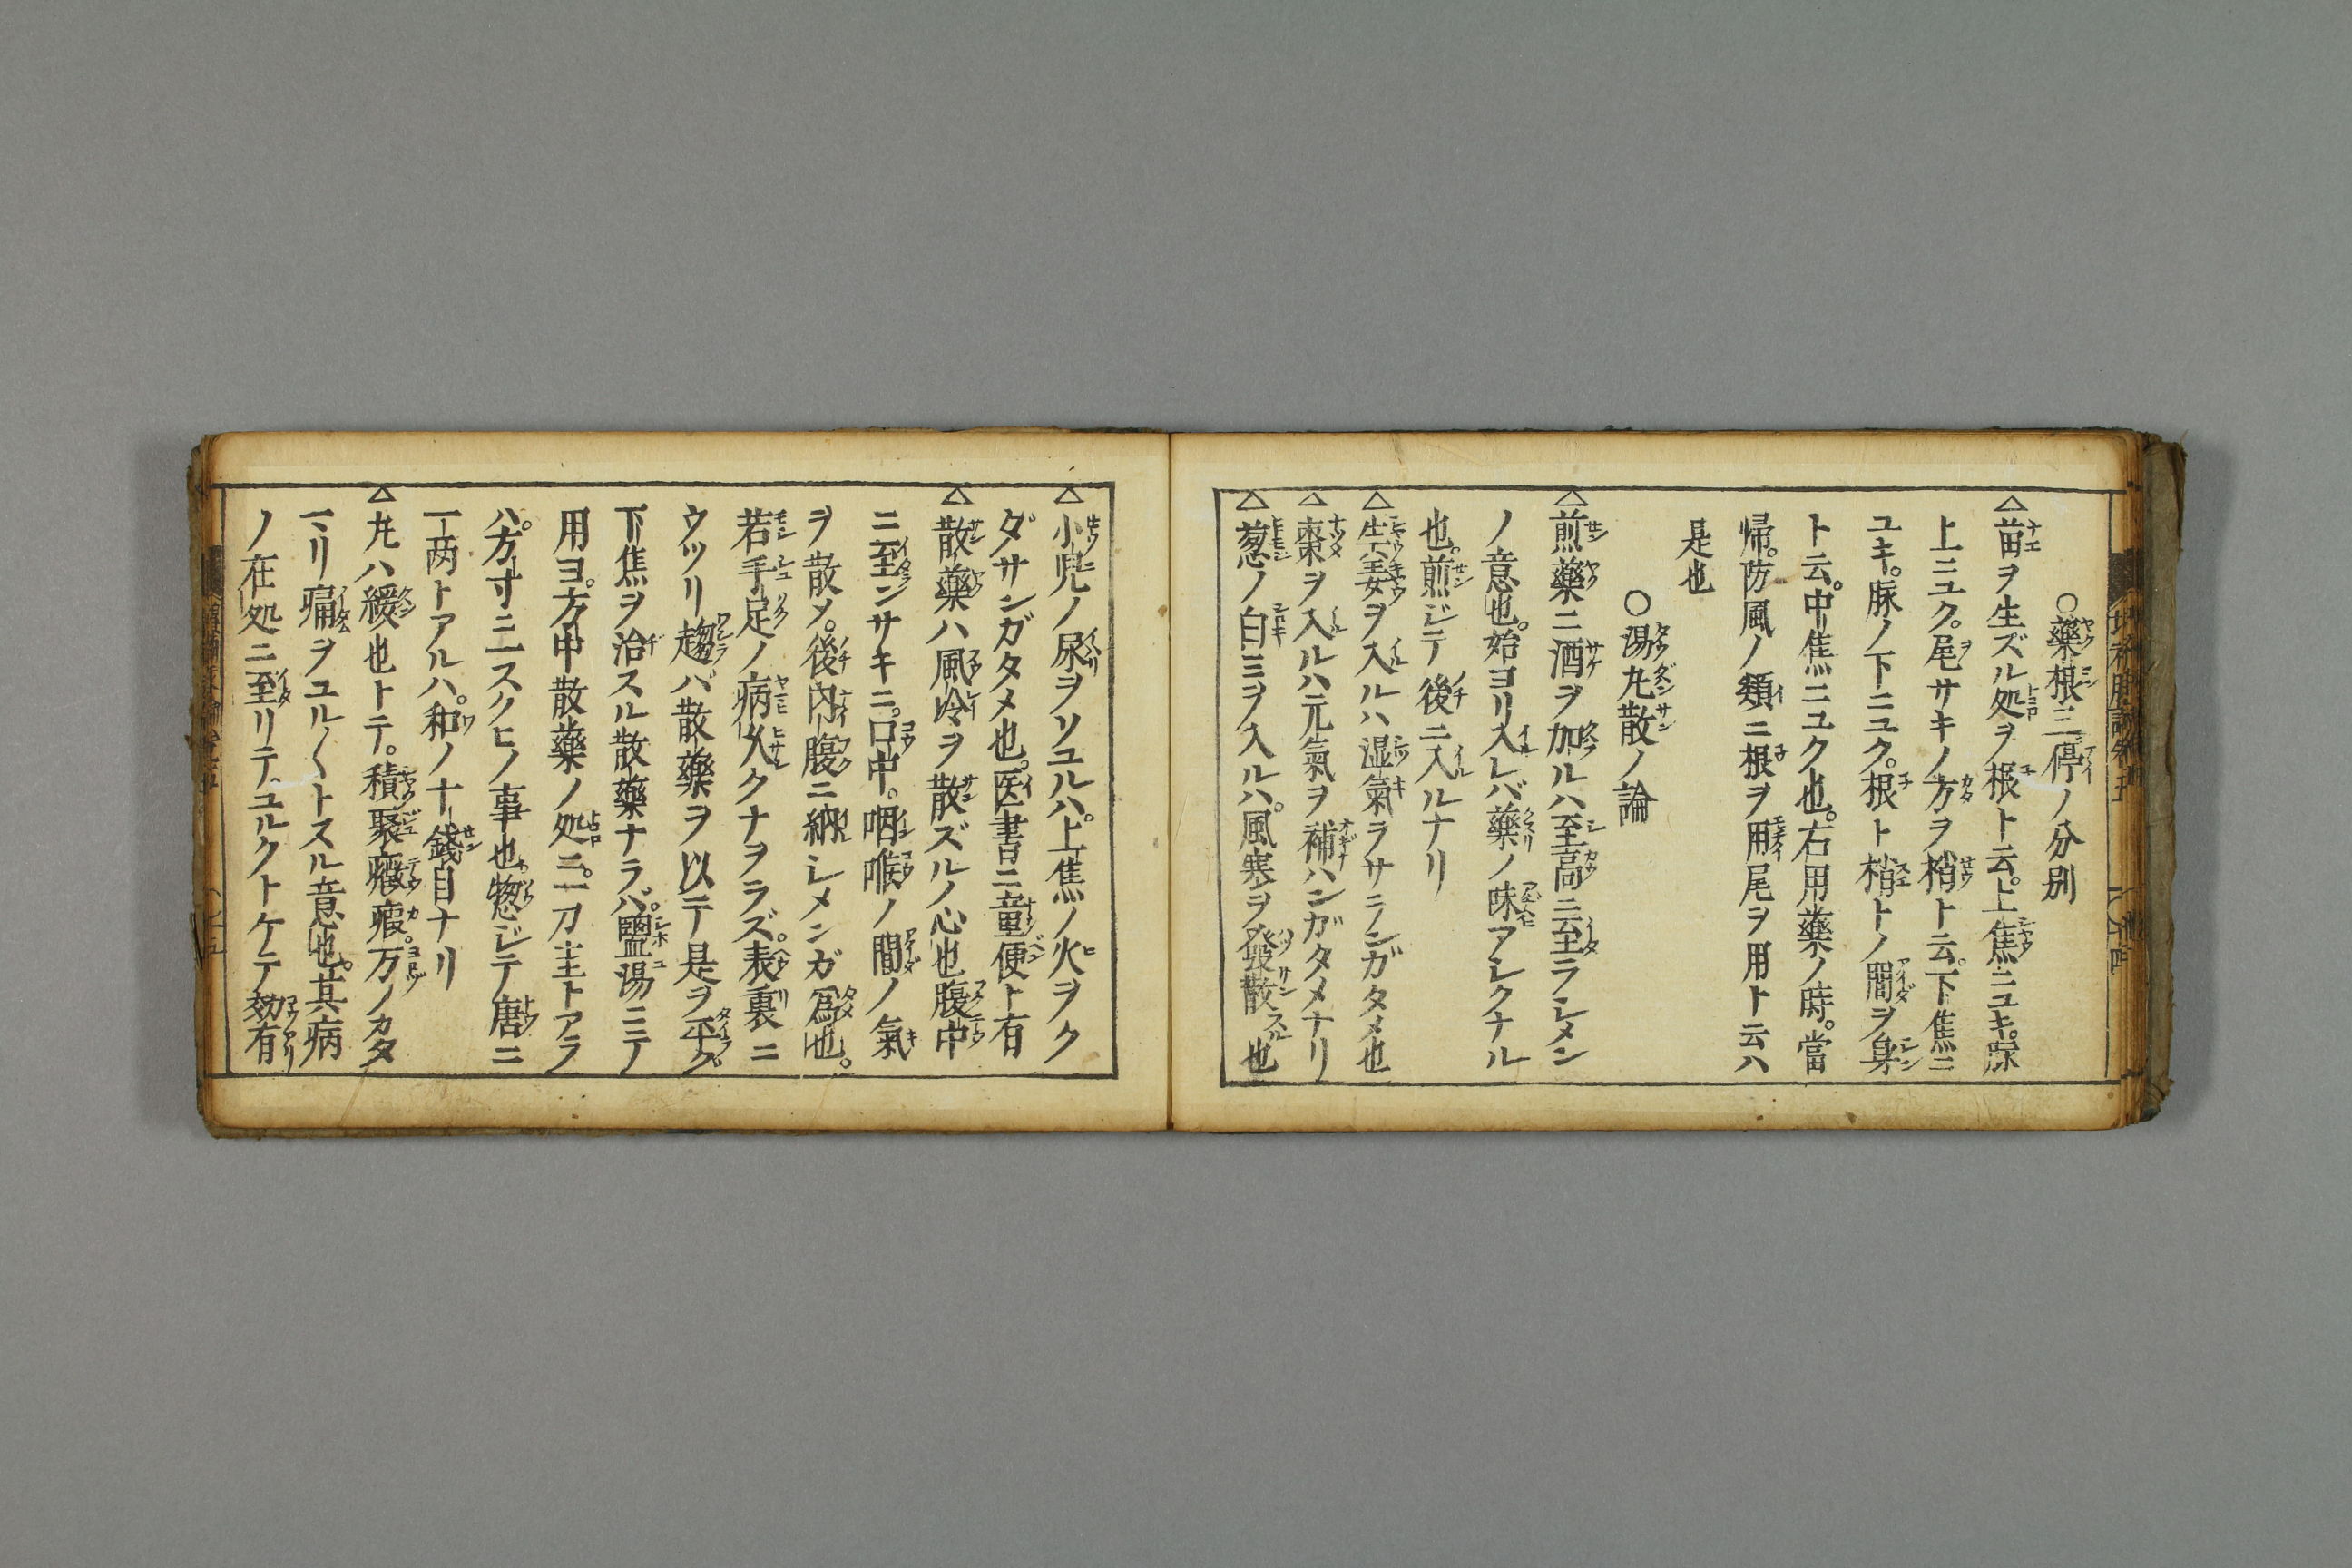 ○藥根三停ノ分別
△苗ヲ生ズル処ヲ根ト云。上焦ニユキ。脉
上ニユク。尾サキノ方ヲ梢ト云。下焦ニ
ユキ。脉ノ下ニユク。根ト梢トノ間ヲ身
ト云。中焦ニユク也。右用藥ノ時。當
帰。防風ノ類ニ根ヲ用尾ヲ用ト云ハ
是也
○湯丸散ノ論
△煎藥ニ酒ヲ加ルハ至高ニ至ラシメン
ノ意也。始ヨリ入レバ藥ノ味アシクナル
也。煎ジテ後ニ入ルナリ
△生姜ヲ入ルハ湿氣ラサランガタメ也
△棗ヲ入ルハ元氣ヲ補ハンガタメナリ
△葱ノ白ミヲ入ルハ。風寒ヲ發散スル也
△小児ノ尿ヲソユルハ。上焦ノ火ヲク
ダサンガタメ也。医書ニ童便ト有
△散藥ハ風冷ヲ散ズルノ心也腹中
ニ至ンサキニ。口中。咽喉ノ間ノ氣
ヲ散メ。後内腹ニ納レメンガ為也。
若手足ノ病久クナヲラズ。表裏ニ
ウツリ趨バ散藥ヲ以テ是ヲ平グ
下焦ヲ治スル散藥ナラバ。鹽湯ニテ
用ヨ。方中散藥ノ処ニ。一刀圭トアラ
ハ。方寸ニ一スクヒノ事也。惣ジテ唐ニ
一両トアルハ。和ノ十錢目ナリ
△丸ハ緩也トテ。積聚癥瘕。万ノカタ
マリ痛ヲユル〱トスル意也。其病
ノ在処ニ至リテ。ユルクトケテ効有